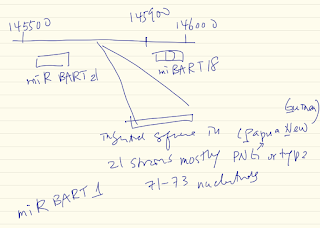 145500 145900 146000
miR BART 21 miBART 18
Inserted in (Papua New
21 strains mostly PNG or type 2
71-73 nucleotides
miR BART 1